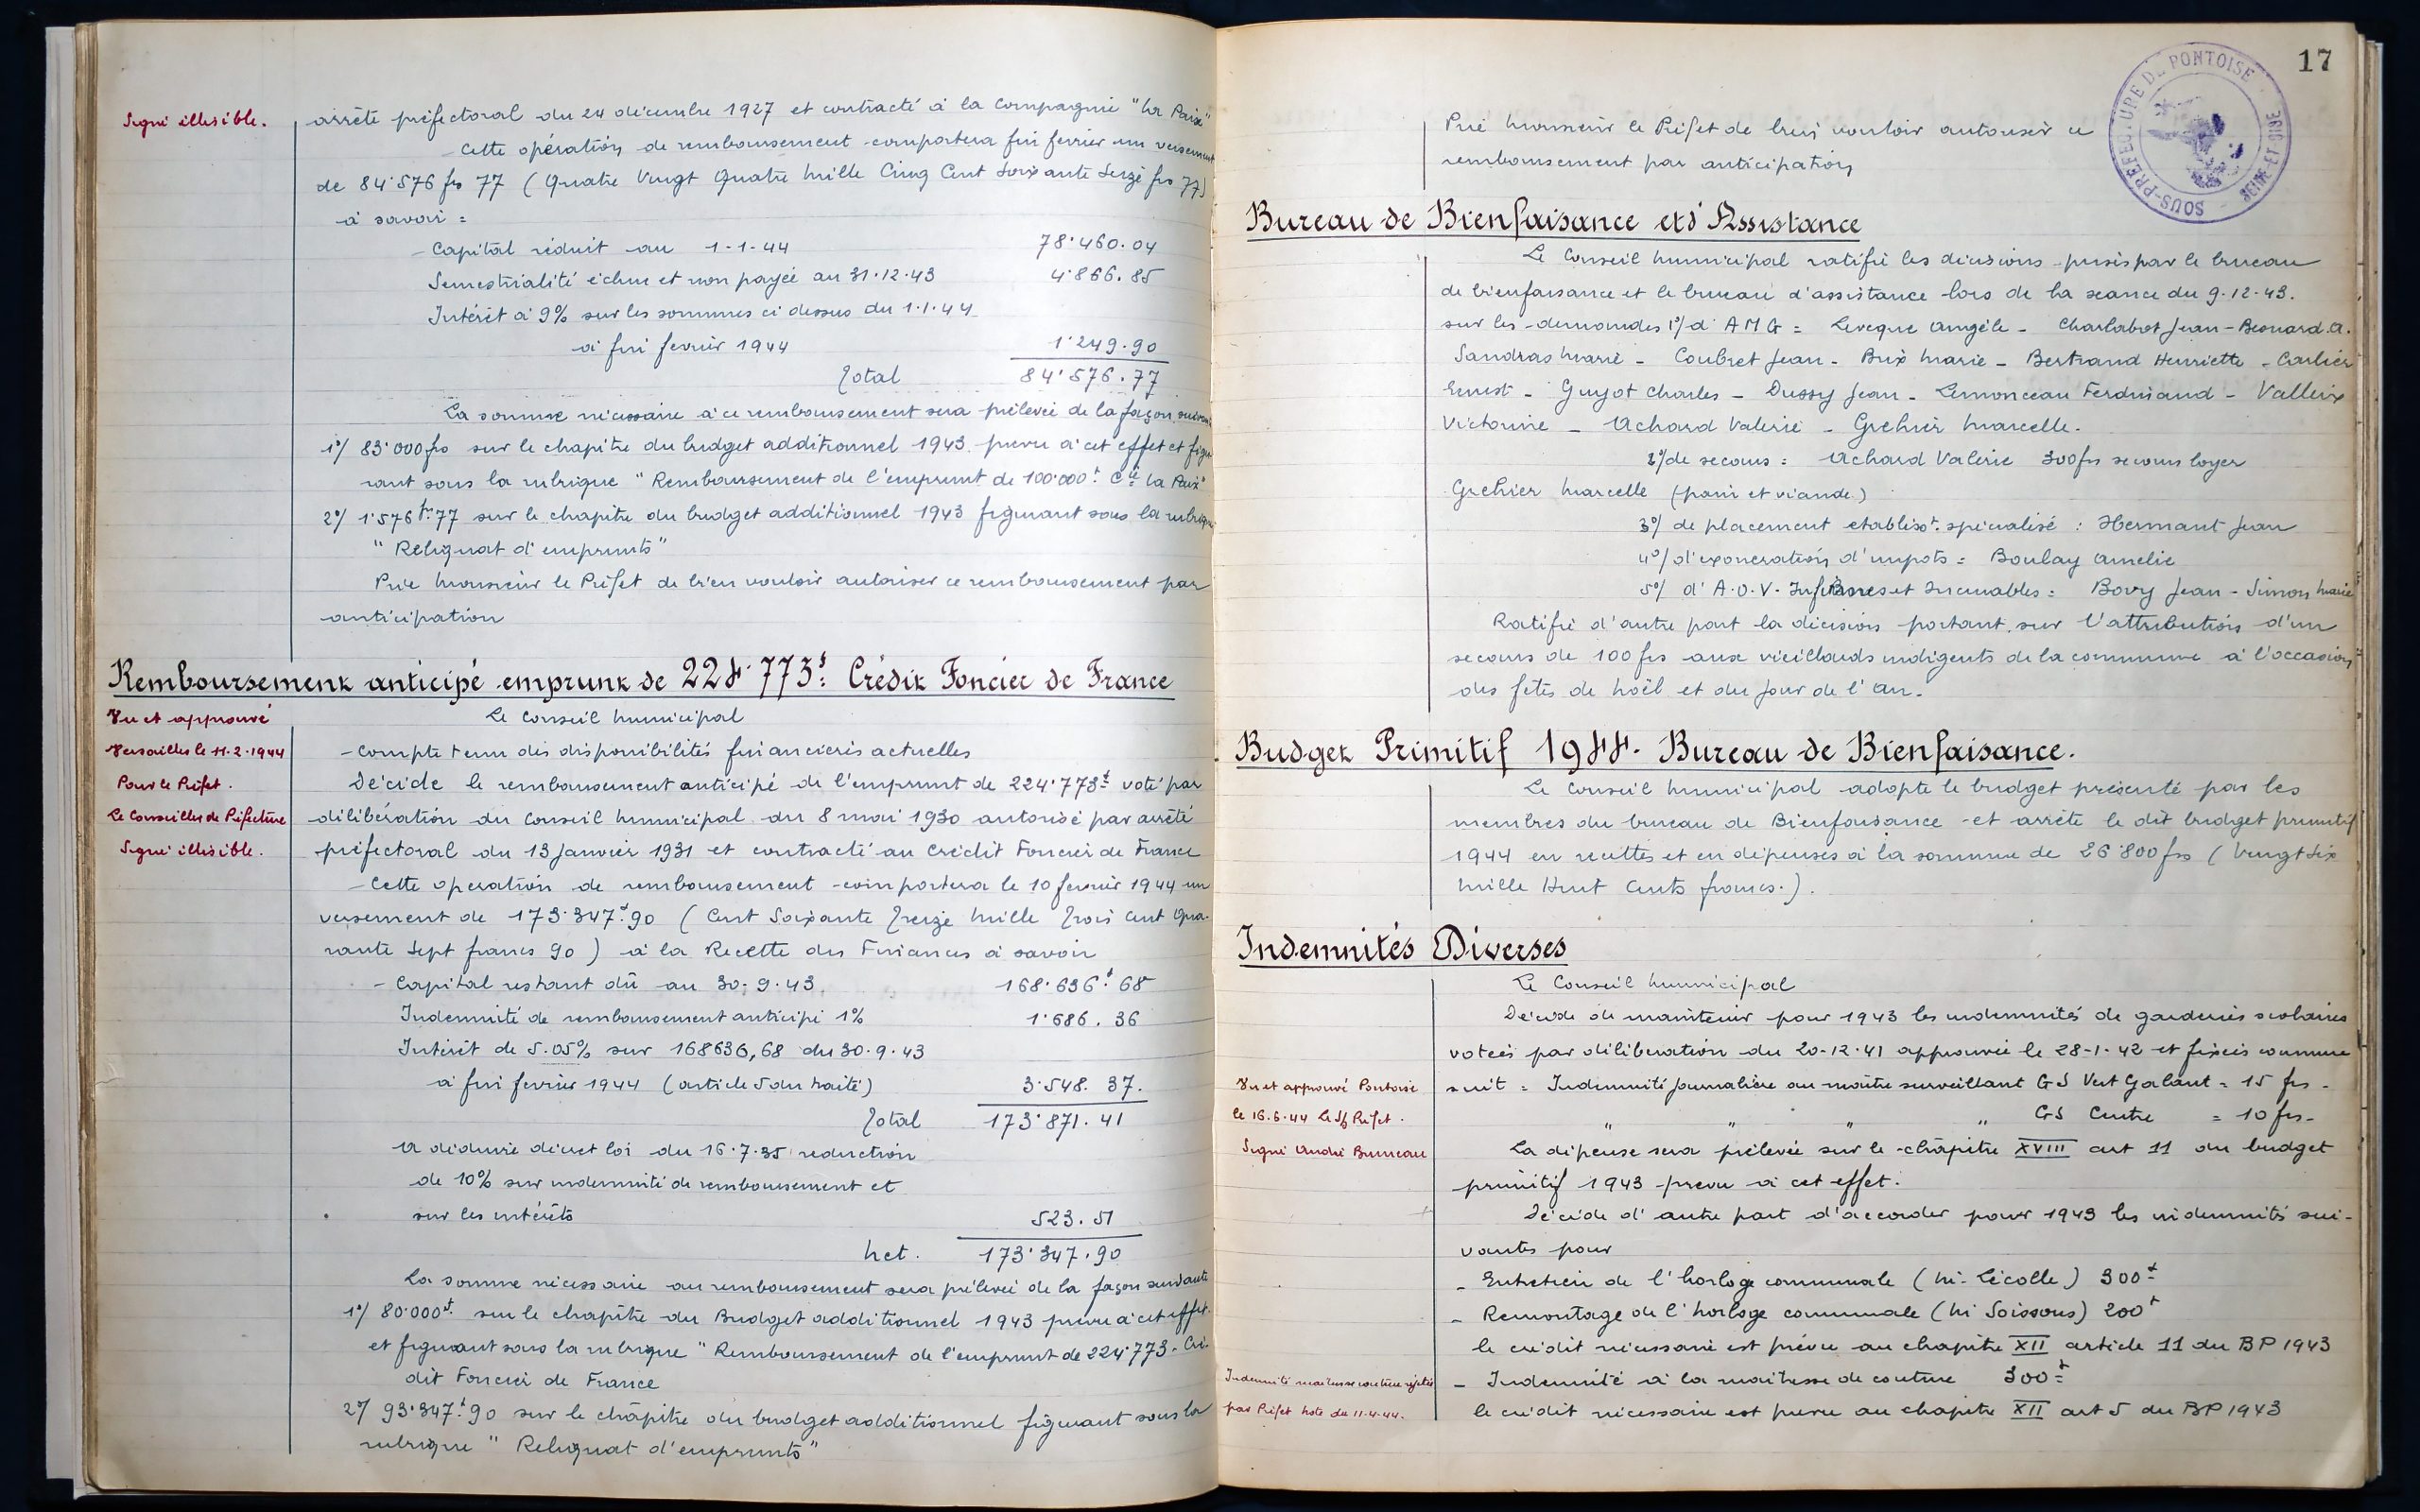 Signé illisible.
arrêté préfectoral du 24 décembre 1927 et contracté à la Compagnie "La Paix"
Cette opération de remboursement comportera fin fevrier un versement
de 84'576 frs 77 (Quatre Vingt Quatre Mille Cinq Cent Soixante Seize frs 77)
à savoir =
- Capital réduit au 1-1-44 78'460.04
Semestrialité échue et non payée au 31.12.43 4'866.85
Intérêt à 9% sur les sommes ci dessus du 1.1.44
à fin fevrier 1944 1'249.90
Total 84'576.77
La somme nécessaire à ce remboursement sera prélevée de la façon suivante
1°/ 83'000 frs sur le chapitre du budget additionnel 1943 prevu à cet effet et figu
rant sous la rubrique "Remboursement de l'emprunt de 100'000f Cie La Paix"
2°/ 1'576 fr. 77 sur le chapitre du budget additionnel 1943 figurant sous la rubrique
"Reliquat d'emprunts"
Prie Monsieur le Préfet de bien vouloir autoriser ce remboursement par
anticipation
Remboursement anticipé emprunt de 224'773f: Crédit Foncier de France
Vu et approuvé
Versailles le 11.2.1944
Pour le Préfet.
Le Conseiller de Préfecture
Signé illisible.
Le Conseil Municipal
- Compte tenu des disponibilités financieres actuelles
Décide le remboursement anticipé de l'emprunt de 224'773f voté par
délibération du Conseil Municipal du 8 mai 1930 autorisé par arrêté
préfectoral du 13 Janvier 1931 et contracté au Crédit Foncier de France
- Cette operation de remboursement comportera le 10 fevrier 1944 un
versement de 173'347f.90 (Cent Soixante Treize Mille Trois Cent Qua-
rante Sept francs 90) à la Recette des Finances à savoir
- Capital restant dû au 30.9.43 168'636f.68
Indemnité de remboursement anticipé 1% 1'686.36
Intérêt de 5.05% sur 168636,68 du 30.9.43
à fin fevrier 1944 (article 5 du traité) 3'548.37.
Total 173'871.41
A déduire décret loi du 16.7.35 reduction
de 10% sur indemnité de remboursement et
sur les intérêts 523.51
Net. 173'347.90
La somme nécessaire au remboursement sera prélevée de la façon suivante
1°/ 80'000f. sur le chapitre du Budget additionnel 1943 prevu à cet effet.
et figurant sous la rubrique "Remboursement de l'emprunt de 224'773 - Cré-
dit Foncier de France
2°/ 93'347f.90 sur le chapitre du budget additionnel figurant sous la
rubrique "Reliquat d'emprunts"
17
SOUS-PREFECTURE DE PONTOISE
SEINE-ET-OISE
Prie Monsieur le Préfet de bien vouloir autoriser ce
remboursement par anticipation
Bureau de Bienfaisance et d'Assistance
Le Conseil Municipal ratifie les décisions prises par le bureau
de bienfaisance et le bureau d'assistance lors de la seance du 9-12-43.
sur les demandes 1°/ d'AMG = Leveque Angèle - Charlabot Jean - Besnard.A.
Sandras Marie - Coubret Jean - Brix Marie - Bertrand Henriette - Carlier
Ernest - Guyot Charles - Dussy Jean - Lemonceau Ferdinand - Valleix
Victorine - Achard Valerie - Grehier Marcelle.
2°/ de secours = Achard Valerie 300frs secours loyer
Grehier Marcelle (pain et viande)
3°/ de placement establisst. spécialisé : Hermant Jean
4°/ d'exoneration d'impots = Boulay Amelie
5°/ d'A.O.V. Infirmes et Incurables = Bovy Jean - Simon Marie
Ratifie d'autre part la décision portant sur l'attribution d'un
secours de 100 frs aux vieillards indigents de la commune à l'occasion
des fêtes de Noël et du Jour de l'An.
Budget Primitif 1944. Bureau de Bienfaisance.
Le Conseil Municipal adopte le budget présenté par les
membres du bureau de Bienfaisance et arrête le dit budget primitif
1944 en recettes et en dépenses à la somme de 26'800 frs (Vingt Six
Mille Huit Cents francs.).
Indemnités Diverses
Le Conseil Municipal
Décide de maintenir pour 1943 les indemnités de garderies scolaires
votées par délibération du 20-12-41 approuvée le 28-1-42 et fixées comme
Vu et approuvé Pontoise
le 16.6.44 Le S/ Préfet.
Signé André Bruneau
suit = Indemnité Journalière au maître surveillant GS Vert Galant = 15 frs -
" " " " GS Centre = 10 frs -
La dépense sera prélevée sur le chapitre XVIII art 11 du budget
primitif 1943 prevu à cet effet.
Décide d'autre part d'accorder pour 1943 les indemnités sui-
vantes pour
- Entretien de l'horloge communale (Mr Lécolle) 300f
- Remontage de l'horloge communale (Mr Soissons) 200f
le crédit nécessaire est prévu au chapitre XII article 11 du BP 1943
Indemnité maîtresse couture rejetée
par Préfet note du 11-4-44.
- Indemnité à la maîtresse de couture 300f
le crédit nécessaire est prevu au chapitre XII art 5 du BP 1943